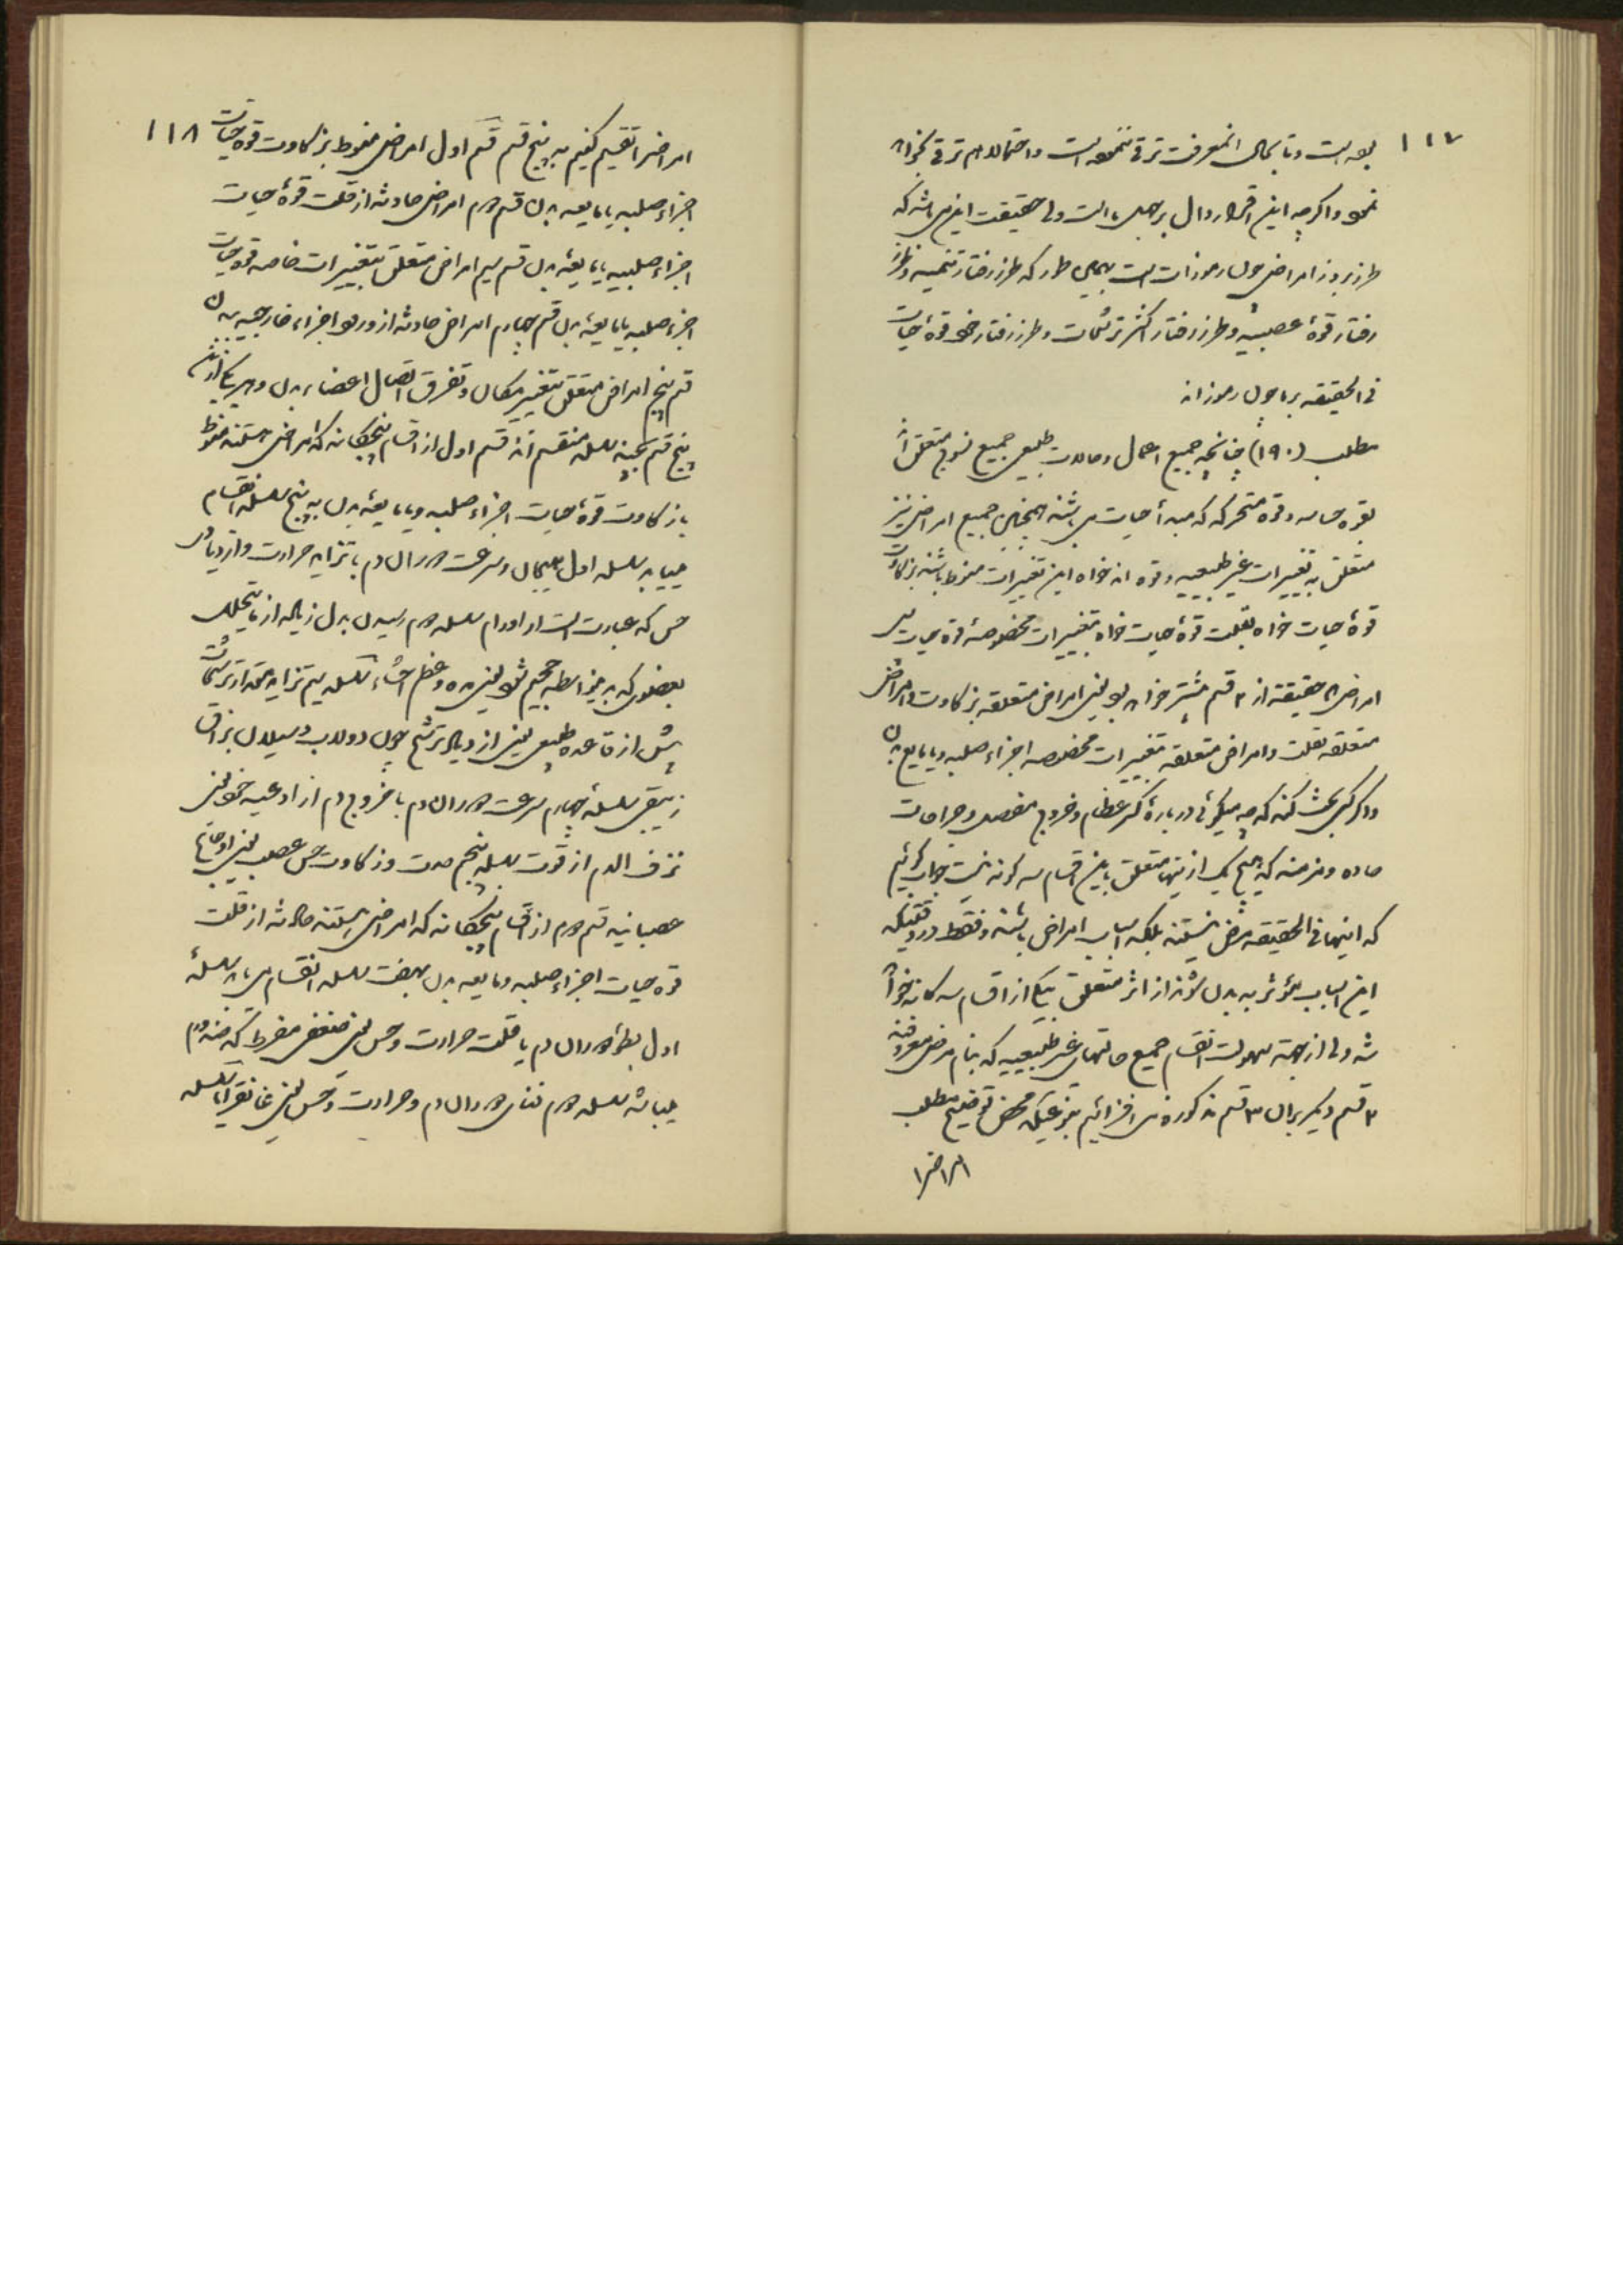 ۱۱۷
بوده است و تا بحال انمعرفت ترقی ننموده است و احتمالا هم ترقی نخواهد
نمود و اگرچه این اقرار دال بر جهل ما است ولی حقیقت این می باشد که
طرز بروز امراض چون رموزات است بهمین طور که طرز رفتار تنمیه و طرز
رفتار قوهٔ عصبیه و طرز رفتار اکثر ترشحات و طرز رفتار خود قوهٔ حیات
فی الحقیقه بر ما چون رموزاند
مطلب (۱۹۰) چنانچه جمیع اعمال و حالات طبیعی جمیع نسوج متعلق اند
بقوه حساسه و قوه متحرکه که مبدأ حیات می باشند همچنین جمیع امراض نیز
متعلق به تغییرات غیر طبیعیه و قوه اند خواه این تغییرات منوط باشند بزکاوت
قوهٔ حیات خواه بقلت قوهٔ حیات خواه بتغییرات مخصوصهٔ قوه حیات پس
امراض حقیقة از ۳ قسم بیشتر نخواهد بود یعنی امراض متعلقه بزکاوت و امراض
متعلقه بقلت و امراض متعلقه بتغییرات مخصوصه اجزاء صلبیه و یا مایع بدن
و اگر کسی بحث کند که چه میگوئی درباره کسر عظام و خروج مفصل و جراحات
حاده و مزمنه که هیچ یک از اینها متعلق باین اقسام سه گونه نیست جواب گوئیم
که اینها فی الحقیقه مرض نیستند بلکه اسباب امراض باشند و فقط در وقتیکه
این اسباب مؤثر به بدن شوند از اثر متعلق بیکی از اقسام سه گانه خواهد
شد ولی از جهة سهولت انقسام جمیع حالتهای غیر طبیعیه که بنام مرض معروفند
۲ قسم دیگر بر آن ۳ قسم مذکوره می افزائیم بنوعیکه محض توضیح مطلب
امراض را
۱۱۸
امراض را تقسیم کنیم به پنج قسم قسم اول امراض منوط بزکاوت قوهٔ حیات
اجزاء صلبیه یا مایعه بدن قسم دوم امراض حادثه از قلت قوهٔ حیات
اجزاء صلبیه یا مایعهٔ بدن قسم سیم امراض متعلق بتغییرات خاصه قوه حیات
اجزء صلبیه یا مایعهٔ بدن قسم چهارم امراض حادثه از ورود اجزاء خارجیه به بدن
قسم پنج امراض متعلق بتغییر مکان و تفرق اتصال اعضاء بدن و هر یک از این
پنج قسم بچند سلسله منقسم اند قسم اول از اقسام پنجگانه که امراضی هستند منوط
بازکاوت قوهٔ حیات اجزاء صلبیه و یا مایعهٔ بدن به پنج سلسله انقسام
مییابد سلسله اول هیجان و سرعت دوران دم با تزاید حرارت و ازدیاد
حس که عبارت است از اورام سلسله دوم رسیدن بدل زیاده از ما یتحلل
بعضوی که بدین واسطه حجیم شود یعنی و عظم احشاء سلسله سیم تزاید مقدار ترشحات
بیش از قاعده طبیعی یعنی ازدیاد ترشح چون دولاب و سیلان بزاق
زیبقی سلسلهٔ چهارم سرعت دوران دم با خروج دم از اوعیه خود یعنی
نزف الدم از قوت سلسله پنجم حدت و زکاوت حس عصب یعنی اوجاع
عصبانیه قسم دوم از اقسام پنجگانه که امراضی هستند حادثه از قلت
قوه حیات اجزاء صلبیه و مایعه بدن بهفت سلسله انقسام می یابد سلسلهٔ
اول بطوء دوران دم با قلت حرارت و حس یعنی ضعفی مفرط که ضد ورم
میباشد سلسله دوم فنای دوران دم و حرارت و حس یعنی غانقرایا سلسله